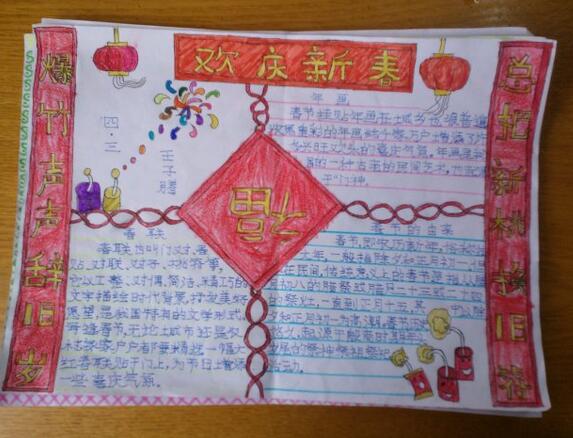 欢庆新春
爆竹声声辞旧岁
总把新桃换旧符
四·三
王子
福
年画
春节挂贴年画在城乡也很普遍
浓墨重彩的年画给千家万户增添了许
多兴旺欢乐的喜庆气氛。年画是我
国的一种古老的民间艺术,
于门神。
春联
春联也叫门对、春
贴、对联、对子、桃符等,
它以工整、对偶、简洁、精巧的
文字描绘时代背景,抒发美好
愿望,是我国特有的文学形式
每逢春节,无论城市还是农
村,家家户户都要精选一幅大
红春联贴于门上,为节日增添
一些喜庆气氛。
春节的由来
春节即农历新年,
年,一般指除夕和正月初一。
在民间,传统意义上的春节是指从腊
月初八的腊祭或腊月二十三
的祭灶,一直到正月十五,其中以除
夕和正月初一为高潮。春节